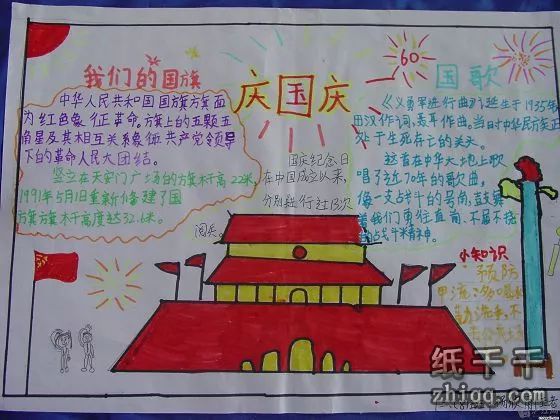 我们的国旗
中华人民共和国国旗旗面
为红色象征革命,旗上的五颗五
角星及其相互关系象征共产党领导
下的革命人民大团结。
竖立在天安门广场的方旗杆高22米,
1991年5月1日重新修建了国
旗旗杆高度达32.6米。
庆国庆
60
国庆纪念日
在中国成立以来,
分别进行过13次
阅兵。
国歌
《义勇军进行曲》诞生于1935年
田汉作词,聂耳作曲。当时中华民族正
处于生死存亡的关头。
这首在中华大地上歌
唱了近70年的歌曲,
像一支战斗的号角,鼓舞
着我们勇往直前、不屈不挠
战斗精神。
小知识
预防
甲流:多喝水
勤洗手,不
去公共场
纸千千
zhiqq.com